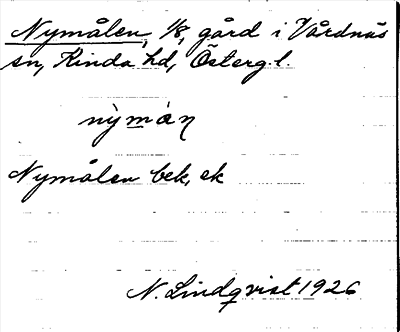 Nymålen, 1/8, gård i Vårdnäs
sn, Kinda hd, Österg.l.
nỳmán
Nymålen bek, ek
N. Lindqvist 1926